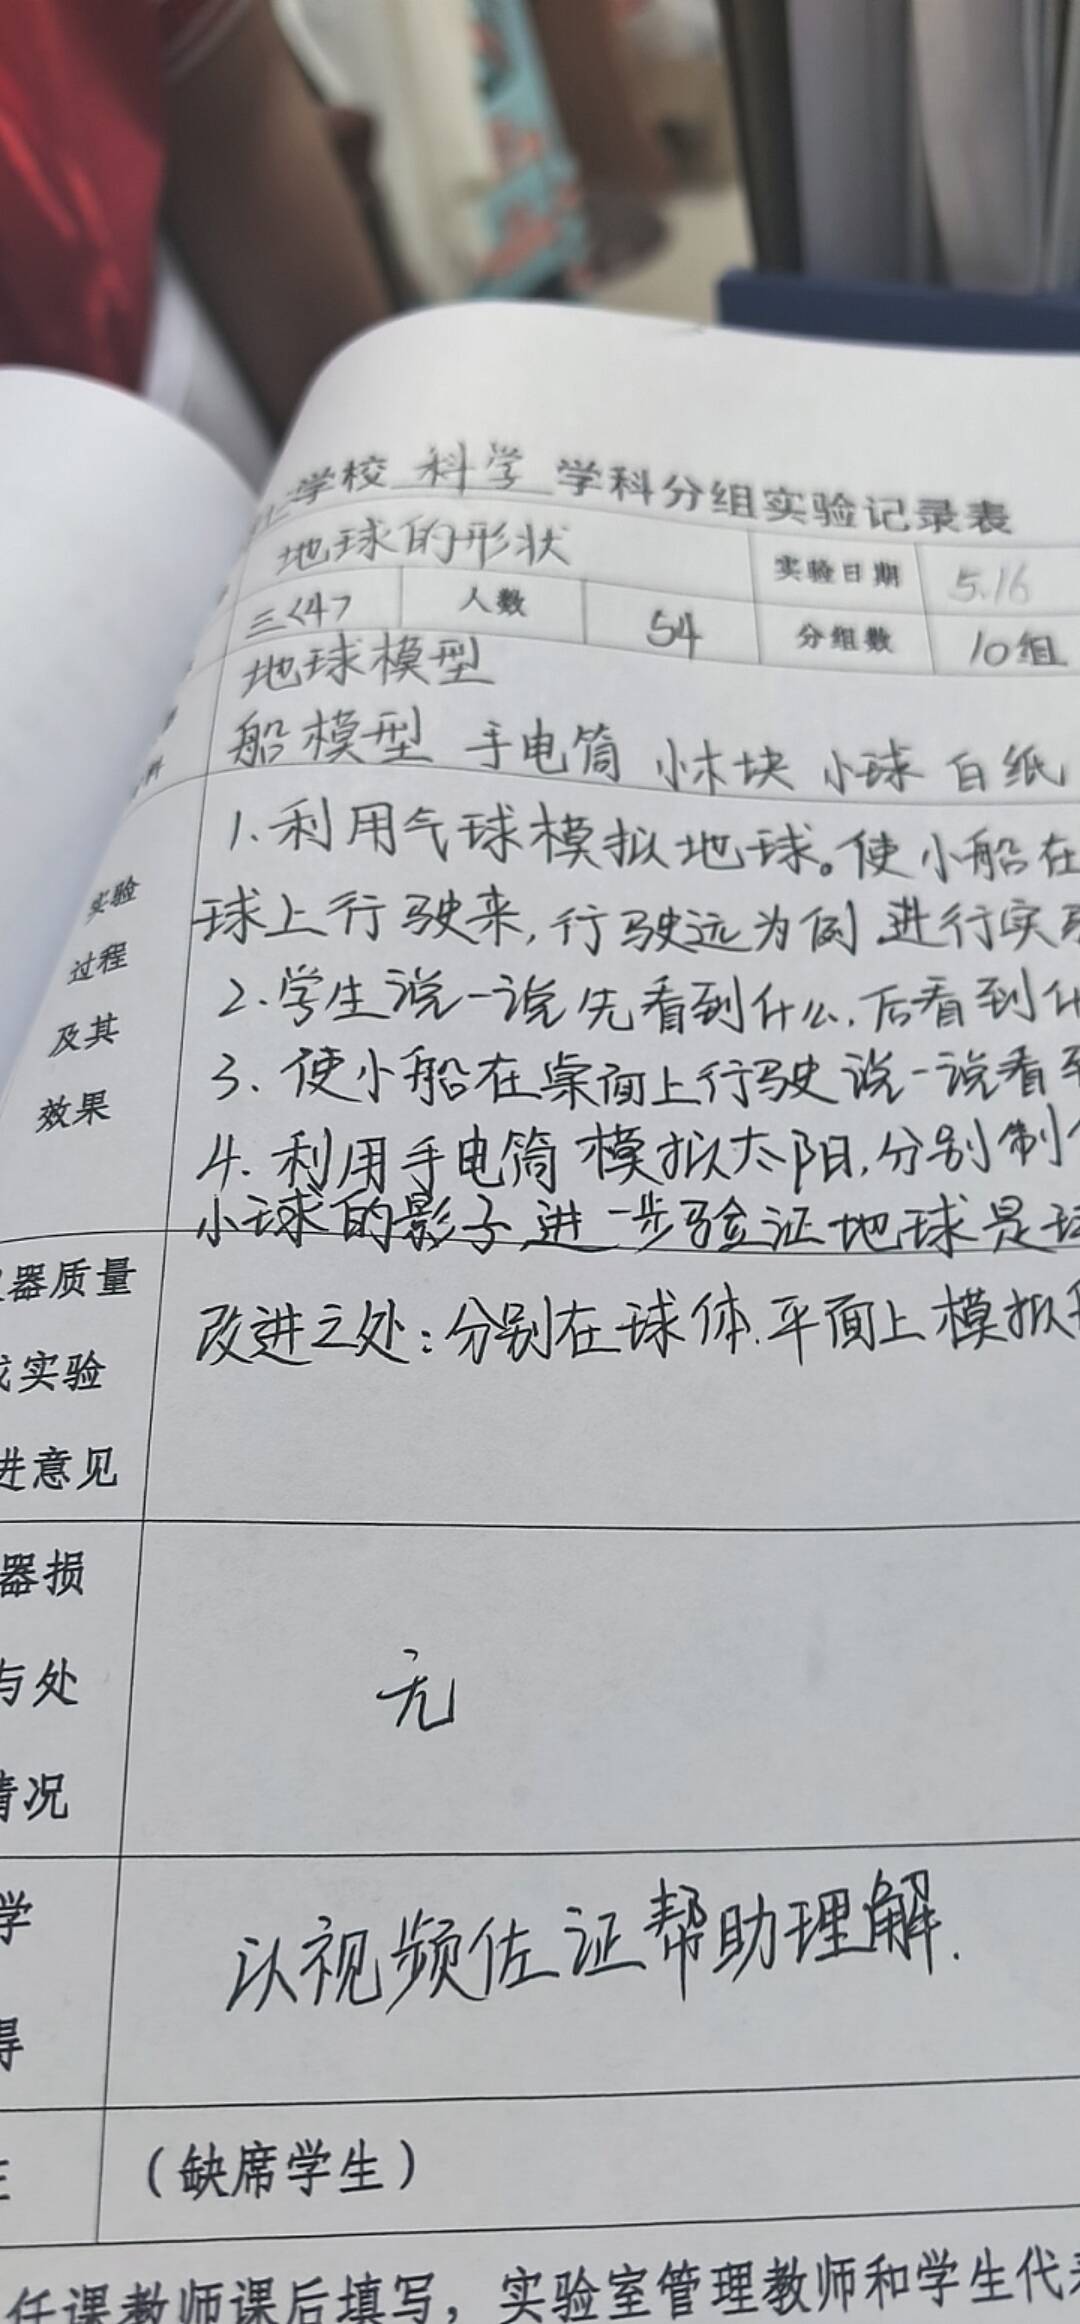 学校 科学 学科分组实验记录表
地球的形状 实验日期 5.16
三<4> 人数 54 分组数 10组
地球模型
船模型 手电筒 小木块 小球 白纸
实验过程及其效果
1.利用气球模拟地球。使小船在
球上行驶来,行驶远为例.进行实
2.学生说一说先看到什么.后看到什
3.使小船在桌面上行驶说一说看到
4.利用手电筒模拟太阳,分别制
小球的影子.进一步验证地球是球
器质量
实验
进意见
改进之处:分别在球体.平面上模拟
器损
与处
情况
无
学
得
以视频佐证帮助理解.
(缺席学生)
任课教师课后填写,实验室管理教师和学生代表